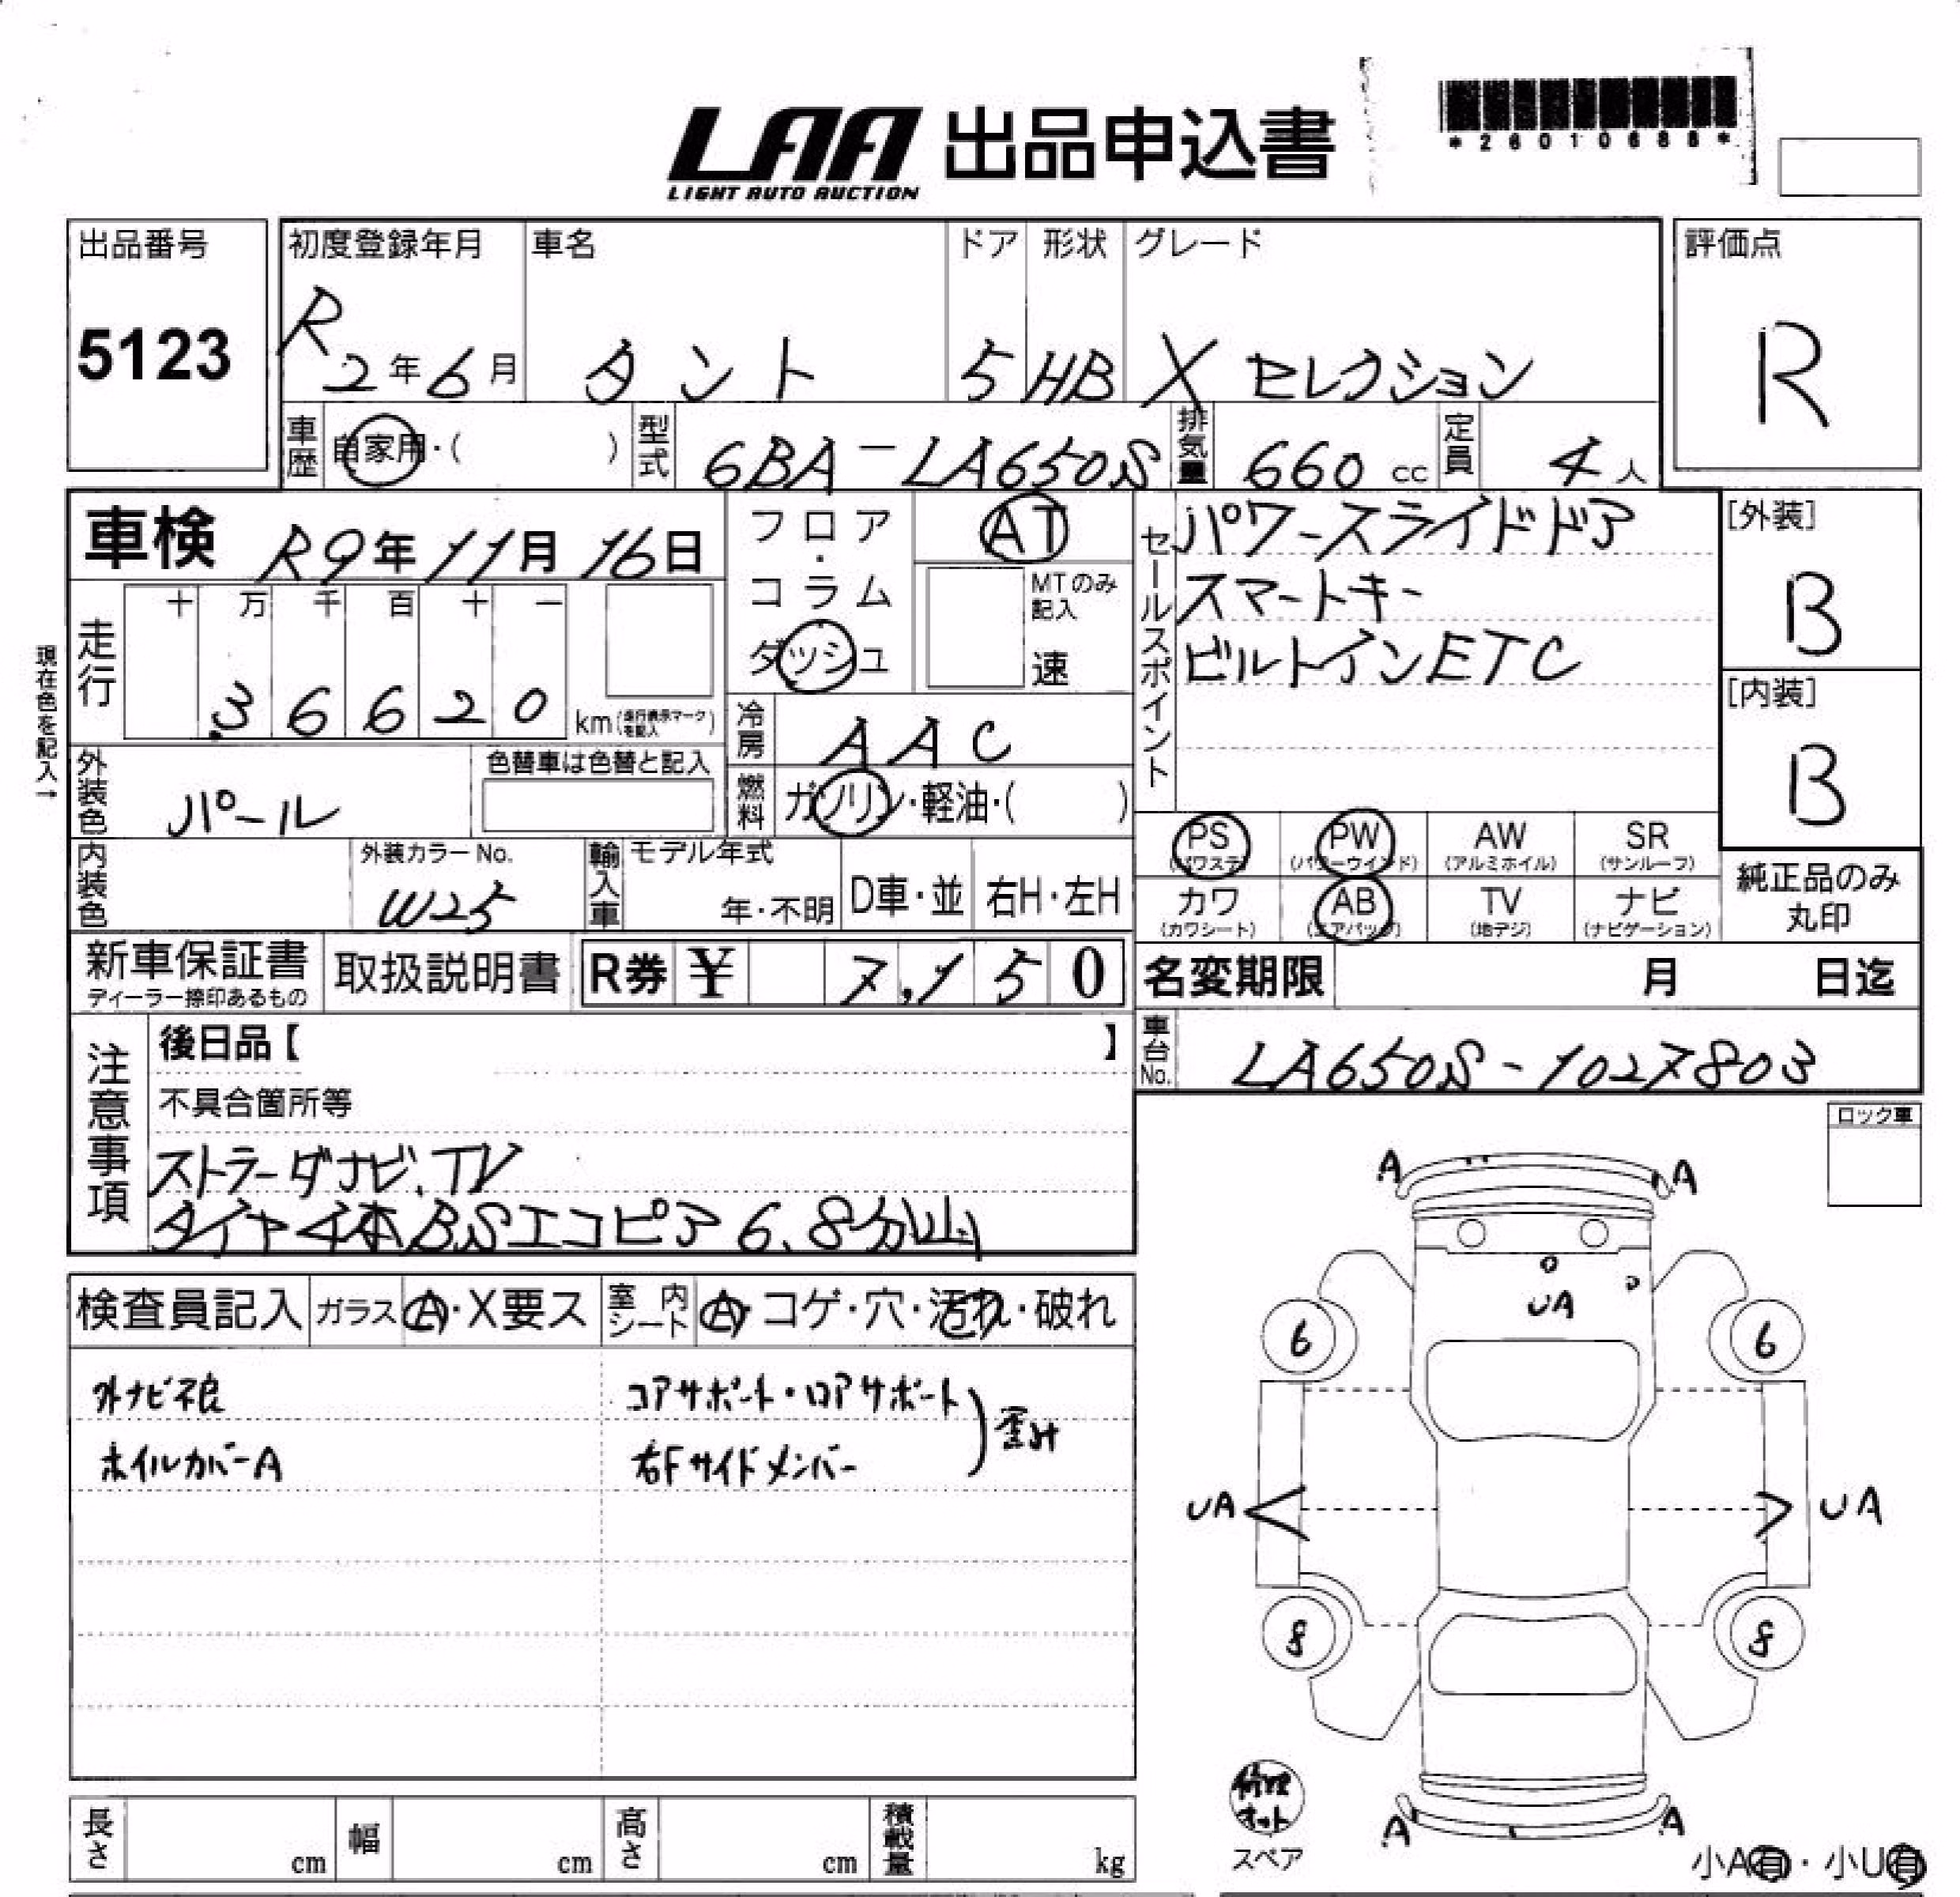 LAA 出品申込書
LIGHT AUTO AUCTION
*26010688*
出品番号
5123
初度登録年月
R2年6月
車名
タント
ドア
5
形状
HB
グレード
X セレクション
評価点
R
車歴
自家用・( )
型式
6BA-LA650S
排気量
660 cc
定員
4人
車検 R9年11月16日
フロア
・
コラム
ダッシュ
AT
MTのみ記入
速
セールスポイント
パワースライドドア
スマートキー
ビルトインETC
[外装]
B
[内装]
B
現在色を記入→
走行
十 万 千 百 十 一
3 6 6 2 0 km(走行表示マークを記入)
冷房
AAC
外装色
パール
色替車は色替と記入
燃料
ガソリン・軽油・( )
PS
(パワステ)
PW
(パワーウインド)
AW
(アルミホイル)
SR
(サンルーフ)
内装色
外装カラーNo.
W25
輸入車
モデル年式
年・不明
D車・並
右H・左H
カワ
(カワシート)
AB
(エアバック)
TV
(地デジ)
ナビ
(ナビゲーション)
純正品のみ
丸印
新車保証書
ディーラー捺印あるもの
取扱説明書
R券 ¥ 7,150
名変期限 月 日迄
注意事項
後日品【 】
不具合箇所等
ストラーダナビ、TV
タイヤ4本BSエコピア6、8分山
車台No.
LA650S-1027803
ロック車
検査員記入
ガラス A・X要ス
室内シート A・コゲ・穴・汚れ・破れ
外ナビ不良
ホイルカバーA
コアサポート・ロアサポート
右Fサイドメンバー
歪み
A A
UA
6 6
UA UA
8 8
修理キット
スペア
A A
小A有・小U有
長さ cm
幅 cm
高さ cm
積載量 kg